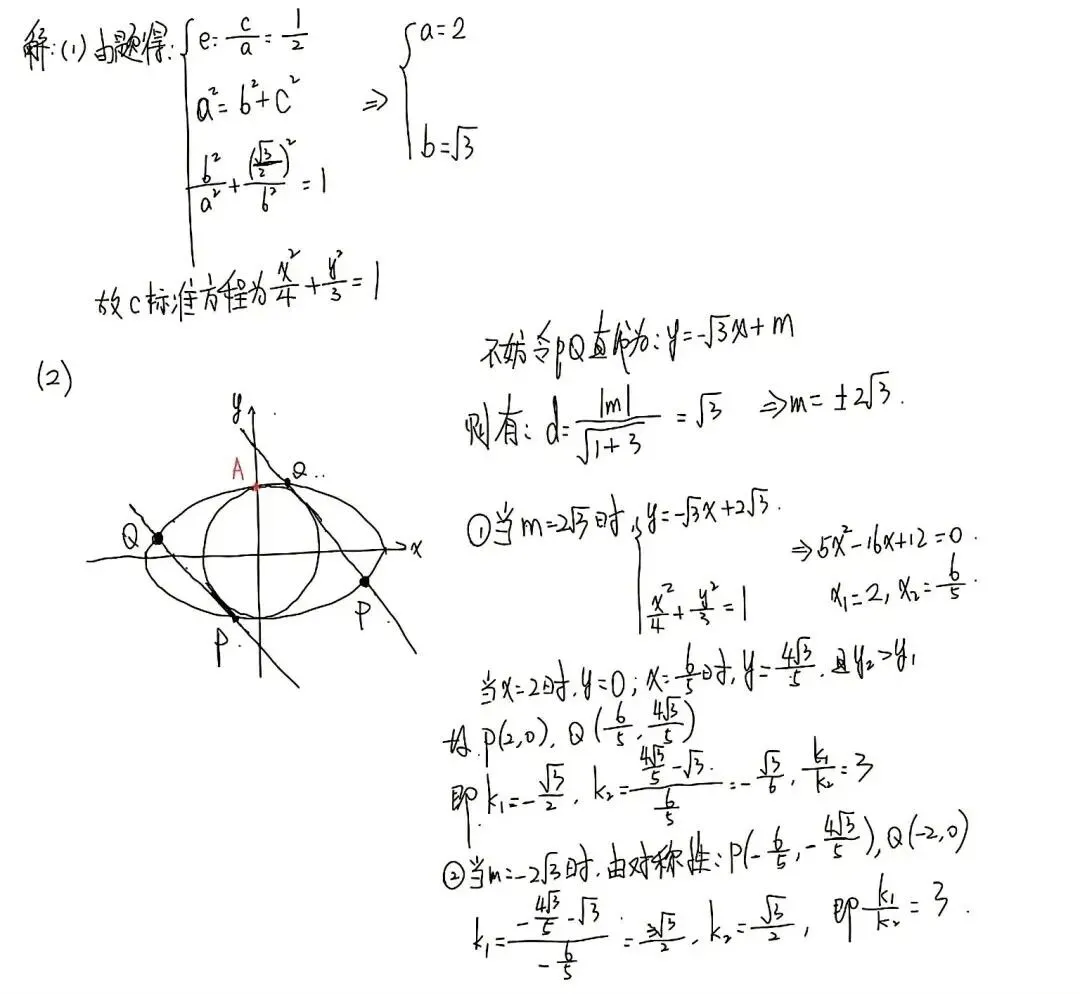 解:(1)由题得: { e=c/a=1/2
a²=b²+c²
b²/a²+(√3/2)²/b²=1
⇒ { a=2
b=√3
故C标准方程为x²/4+y²/3=1
(2)
y
A
Q
Q
x
P
P
不妨令PQ直线为:y=-√3x+m
则有: d=|m|/√(1+3)=√3 ⇒m=±2√3.
①当m=2√3时, { y=-√3x+2√3.
x²/4+y²/3=1
⇒5x²-16x+12=0.
x₁=2, x₂=6/5.
当x=2时,y=0; x=6/5时,y=4√3/5.且y₂>y₁
故P(2,0), Q(6/5, 4√3/5)
即k₁=-√3/2, k₂=(4√3/5-√3)/(6/5)=-√3/6, k₁/k₂=3
②当m=-2√3时.由对称性:P(-6/5,-4√3/5),Q(-2,0)
k₁=(-4√3/5-√3)/(-6/5)=3√3/2, k₂=√3/2, 即k₁/k₂=3.